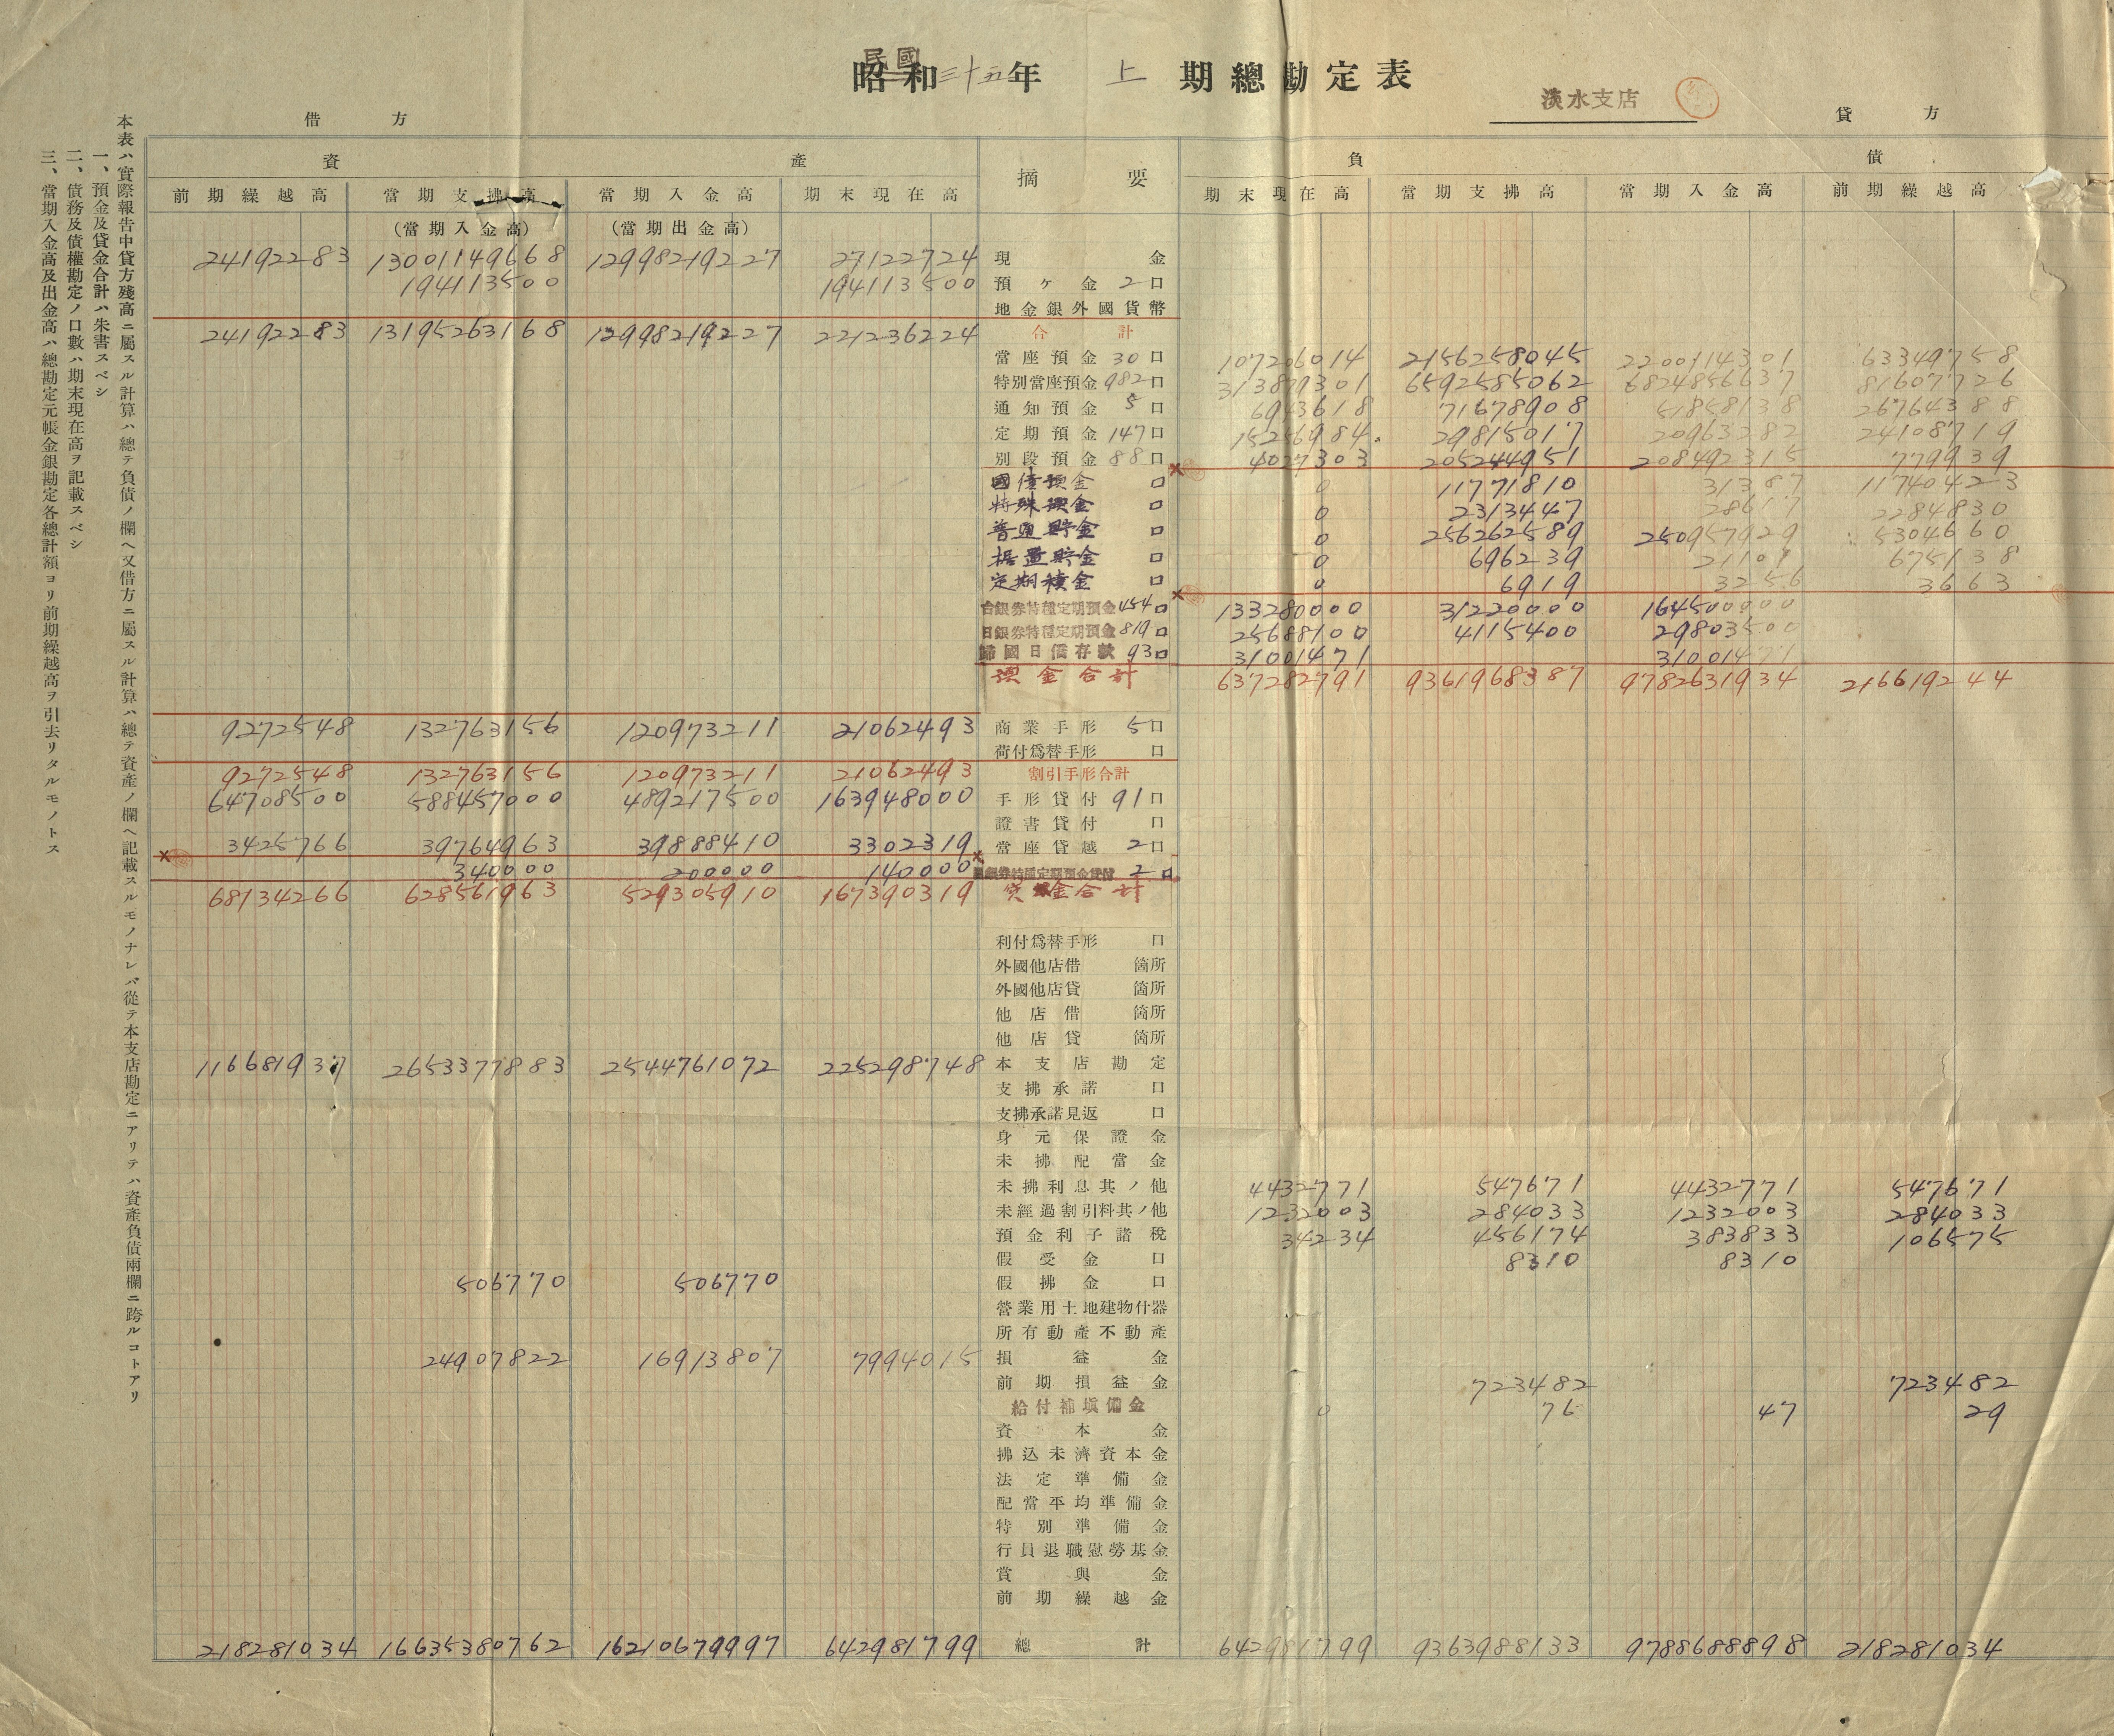 民國
昭和三十五年 上 期總勘定表
淡水支店
借方
貸方
資產
摘要
負債
前期繰越高 當期支拂高 當期入金高 期末現在高 期末現在高 當期支拂高 當期入金高 前期繰越高
(當期入金高) (當期出金高)
24192283 13001149668 12998219227 27122724 現金
194113500 194113500 預ヶ金 2口
地金銀外國貨幣
24192283 13195263168 12998219227 221236224 合計
當座預金 30口 107206014 2156258045 2200114301 63349758
特別當座預金 982口 313879301 6592585062 6824856637 81607726
通知預金 5口 6943618 71678908 51858138 26764388
定期預金 147口 15256984 29815017 20963282 24108719
別段預金 88口 4027303 205244951 208492315 779939
國債預金 口 0 11771810 31387 11740423
特殊預金 口 0 2313447 28617 2284830
普通貯金 口 0 256262589 250957929 5304660
据置貯金 口 0 696239 21101 675138
定期積金 口 0 6919 3256 3663
台銀券特種定期預金 454口 133280000 31220000 164500000
日銀券特種定期預金 819口 25688100 4115400 29803500
歸國日僑存款 93口 31001471 31001471
預金合計 637282791 9361968387 9782631934 216619244
9272548 132763156 120973211 21062493 商業手形 5口
荷付爲替手形 口
9272548 132763156 120973211 21062493 割引手形合計
64708500 588457000 489217500 163948000 手形貸付 91口
證書貸付 口
3425766 39764963 39888410 3302319 當座貸越 2口
340000 200000 140000 銀券特種定期預金貸付 2口
68134266 628561963 529305910 167390319 貸金合計
利付爲替手形 口
外國他店借 箇所
外國他店貸 箇所
他店借 箇所
他店貸 箇所
116681937 2653377883 2544761072 225298748 本支店勘定
支拂承諾 口
支拂承諾見返 口
身元保證金
未拂配當金
未拂利息其ノ他 4432771 547671 4432771 547671
未經過割引料其ノ他 1232003 284033 1232003 284033
預金利子諸稅 34234 456174 383833 106575
假受金 口 8310 8310
506770 506770 假拂金 口
營業用土地建物什器
所有動產不動產
24907822 16913807 7994015 損益金
前期損益金 723482 723482
給付補塡備金 0 76 47 29
資本金
拂込未濟資本金
法定準備金
配當平均準備金
特別準備金
行員退職慰勞基金
賞與金
前期繰越金
218281034 16635380762 16210679997 642981799 總計 642981799 9363988133 9788688898 218281034
本表ハ實際報告中貸方殘高ニ屬スル計算ハ總テ負債ノ欄ヘ又借方ニ屬スル計算ハ總テ資產ノ欄ヘ記載スルモノナレバ從テ本支店勘定ニアリテハ資產負債兩欄ニ跨ルコトアリ
一、預金及貸金合計ハ朱書スベシ
二、債務及債權勘定ノ口數ハ期末現在高ヲ記載スベシ
三、當期入金高及出金高ハ總勘定元帳金銀勘定各總計額ヨリ前期繰越高ヲ引去リタルモノトス